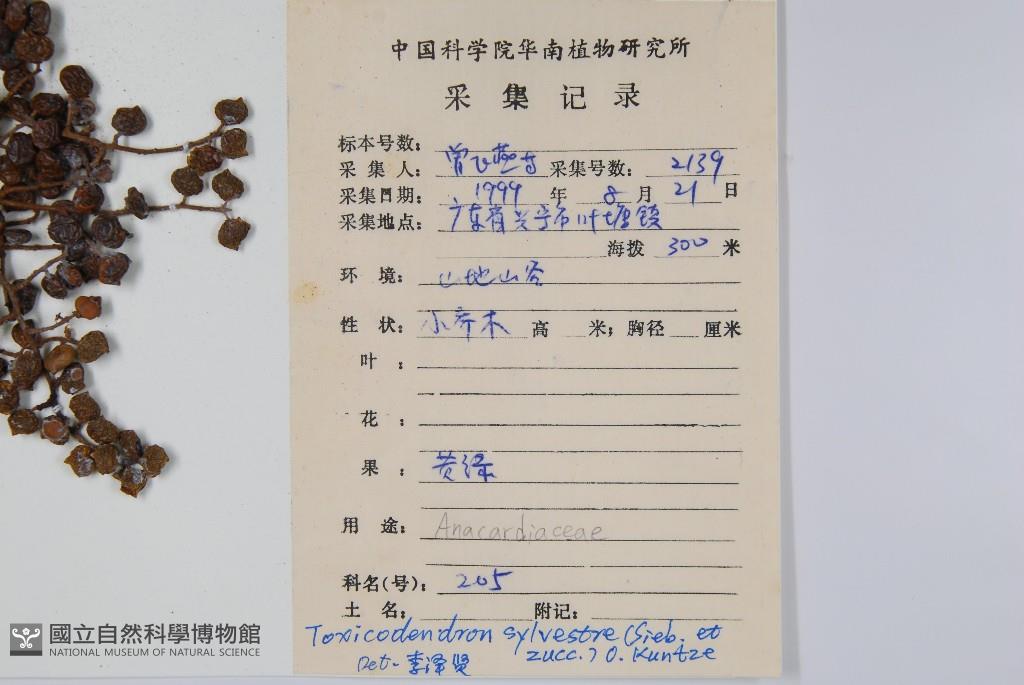 中国科学院华南植物研究所
采集记录
标本号数：
采集人：曾飞燕等 采集号数：2139
采集日期：1999年8月21日
采集地点：广东省兴宁市叶塘镇
海拨 300 米
环境：山地山谷
性状：小乔木 高 米；胸径 厘米
叶：
花：
果：黄绿
用途：Anacardiaceae
科名(号)：205
土名： 附记：
Toxicodendron sylvestre (Sieb. et
Zucc.) O. Kuntze
Det. 李泽贤
國立自然科學博物館
NATIONAL MUSEUM OF NATURAL SCIENCE